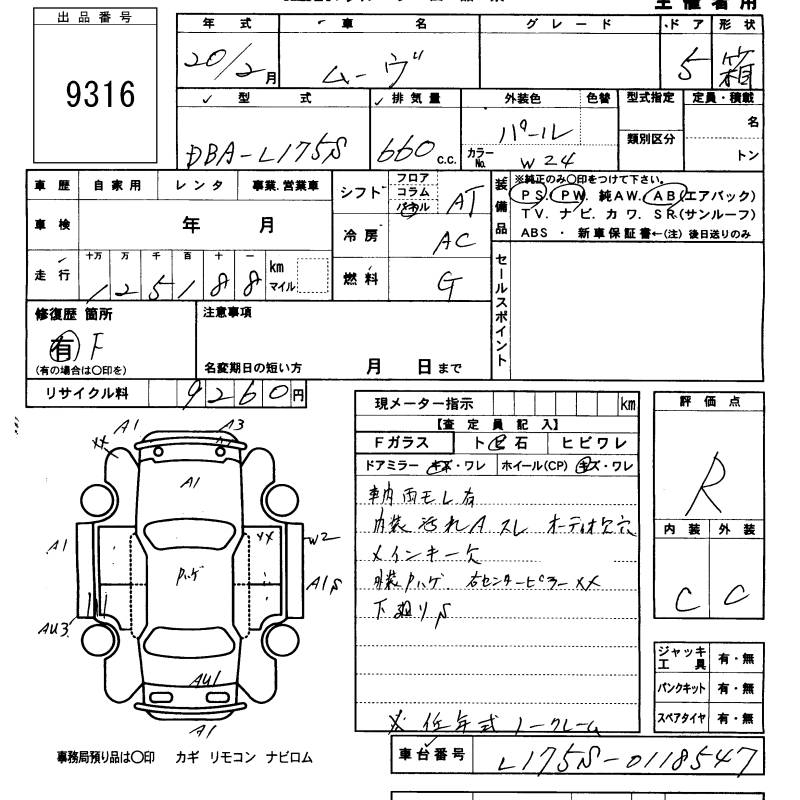 主催者用
出品番号
9316
年式 車名 グレード ドア 形状
20/2月 ムーヴ 5 箱
型式 排気量 外装色 色替 型式指定 定員・積載
DBA-L175S 660c.c. パール 類別区分 名
カラーNo. W24 トン
車歴 自家用 レンタ 事業.営業車
シフト フロア コラム パネル AT
装備品
※純正のみ○印をつけて下さい。
PS. PW. 純AW. AB(エアバック)
TV. ナビ. カワ. SR(サンルーフ)
ABS ・ 新車保証書←(注) 後日送りのみ
車検 年 月
冷房 AC
走行 十万 万 千 百 十 一 km マイル
125188
燃料 G
セールスポイント
修復歴 箇所
有 F
(有の場合は○印を)
注意事項
名変期日の短い方 月 日まで
リサイクル料 9260円
現メーター指示 km
【査定員記入】
Fガラス ト 石 ヒビワレ
ドアミラー キズ・ワレ ホイール(CP) キズ・ワレ
車内雨モレ有
内装汚れA スレ オーディオ欠穴
メインキー欠
外装Pハゲ 右センターピラーXX
下廻りS
※ 低年式 ノークレーム
評価点
R
内装 外装
C C
ジャッキ工具 有・無
パンクキット 有・無
スペアタイヤ 有・無
A1 A3
XX
A1
A1 XX W2
Pハゲ A1S
AU3
AU1
A1
事務局預り品は○印 カギ リモコン ナビロム
車台番号 L175S-0118547